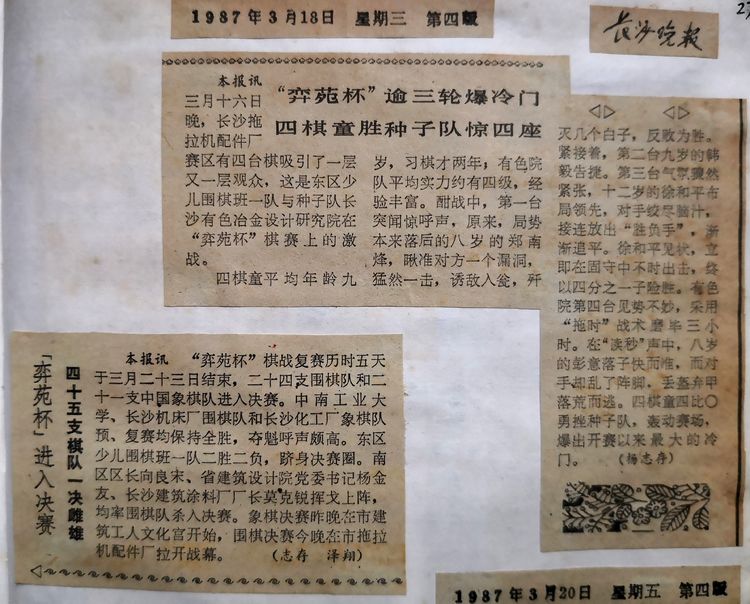 1987年3月18日 星期三 第四版
长沙晚报
27
“弈苑杯”逾三轮爆冷门
四棋童胜种子队惊四座
本报讯
三月十六日
晚，长沙拖
拉机配件厂
赛区有四台棋吸引了一层
又一层观众，这是东区少
儿围棋班一队与种子队长
沙有色冶金设计研究院在
“弈苑杯”棋赛上的激
战。
四棋童平均年龄九
岁，习棋才两年；有色院
队平均实力约有四级，经
验丰富。酣战中，第一台
突闻惊呼声，原来，局势
本来落后的八岁的郑南
烽，瞅准对方一个漏洞，
猛然一击，诱敌入瓮，歼
灭几个白子，反败为胜。
紧接着，第二台九岁的韩
毅告捷。第三台气氛骤然
紧张，十二岁的徐和平布
局领先，对手绞尽脑汁，
接连放出“胜负手”，渐
渐追平。徐和平见状，立
即在固守中不时出击，终
以四分之一子险胜。有色
院第四台见势不妙，采用
“拖时”战术磨毕三小
时。在“读秒”声中，八岁
的彭意落子快而准，而对
手却乱了阵脚，丢盔弃甲
落荒而逃。四棋童四比〇
勇挫种子队，轰动赛场，
爆出开赛以来最大的冷
门。 （杨志存）
四十五支棋队一决雌雄
「弈苑杯」进入决赛
本报讯 “弈苑杯”棋战复赛历时五天
于三月二十三日结束，二十四支围棋队和二
十一支中国象棋队进入决赛。中南工业大
学、长沙机床厂围棋队和长沙化工厂象棋队
预、复赛均保持全胜，夺魁呼声颇高。东区
少儿围棋班一队二胜二负，跻身决赛圈。南
区区长向良宋、省建筑设计院党委书记杨金
友、长沙建筑涂料厂厂长莫克锐挥戈上阵，
均率围棋队杀入决赛。象棋决赛昨晚在市建
筑工人文化宫开始，围棋决赛今晚在市拖拉
机配件厂拉开战幕。 （志存 泽翔）
1987年3月20日 星期五 第四版